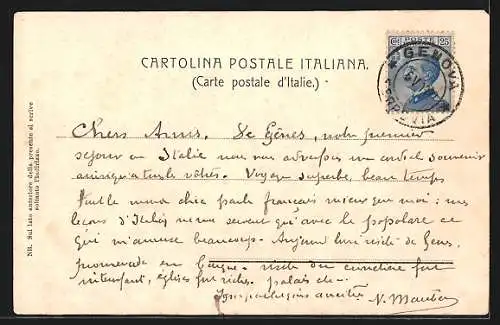 CARTOLINA POSTALE ITALIANA.
(Carte postale d'Italie.)
25
GENOVA
FERROVIA
NB. Sul lato anteriore della presente si scrive
soltanto l'indirizzo.
Chers Amis, De Gênes, notre premier
séjour en Italie nous vous adressons un cordial souvenir
ainsi qu'à tous les vôtres. Voyage superbe, beau temps
parle français mieux que moi : mes
leçons d'Italien ne me servent qu'avec le populaire ce
qui m'amuse beaucoup. Aujourd'hui visite de Gênes,
promenade en barque visite du cimetière fort
intéressant, églises fort riches. palais etc.
N.